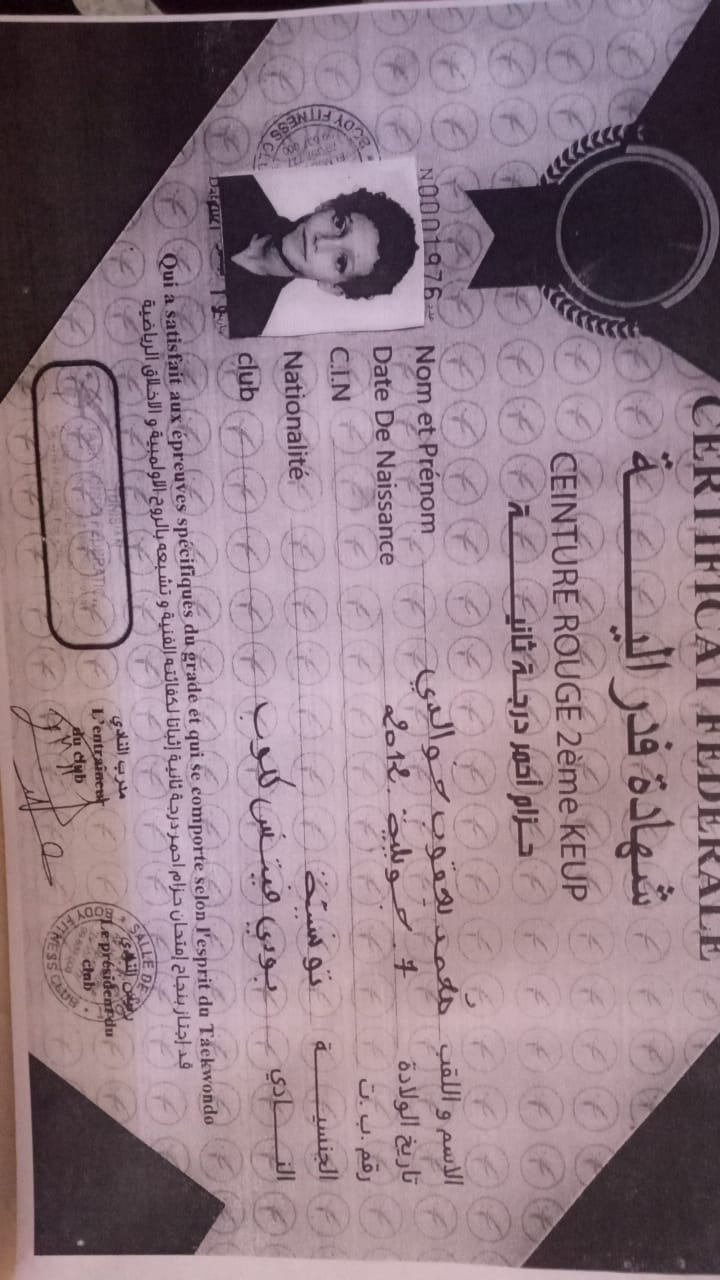 CERTIFICAT FEDERALE
شهادة فدرالية
CEINTURE ROUGE 2ème KEUP
حزام أحمر درجة ثانية
N0001976 عدد
Nom et Prénom محمد يعقوب خوالدي الاسم و اللقب
Date De Naissance 7 جويلية 2012 تاريخ الولادة
C.I.N رقم ب. ت.
Nationalité تونسية الجنسية
club بودي فيتنس كلوب النادي
Qui a satisfait aux épreuves spécifiques du grade et qui se comporte selon l'esprit du Taekwondo
قد إجتاز بنجاح إمتحان حزام احمر درجة ثانية إثباتا لكفائته الفنية و تشبعه بالروح الاولمبية و الاخلاق الرياضية
مدرب النادي
L'entrainent
du club
رئيس النادي
Le président du
club
SALLE DE
BODY FITNESS CLUB
BODY FITNESS